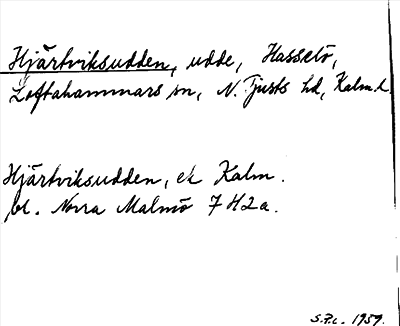 Hjärtviksudden, udde, Hasselö,
Loftahammars sn, N. Tjusts hd, Kalm. l.
Hjärtviksudden, ek Kalm.
bl. Norra Malmö 7 H 2 a.
S.P.L. 1959.